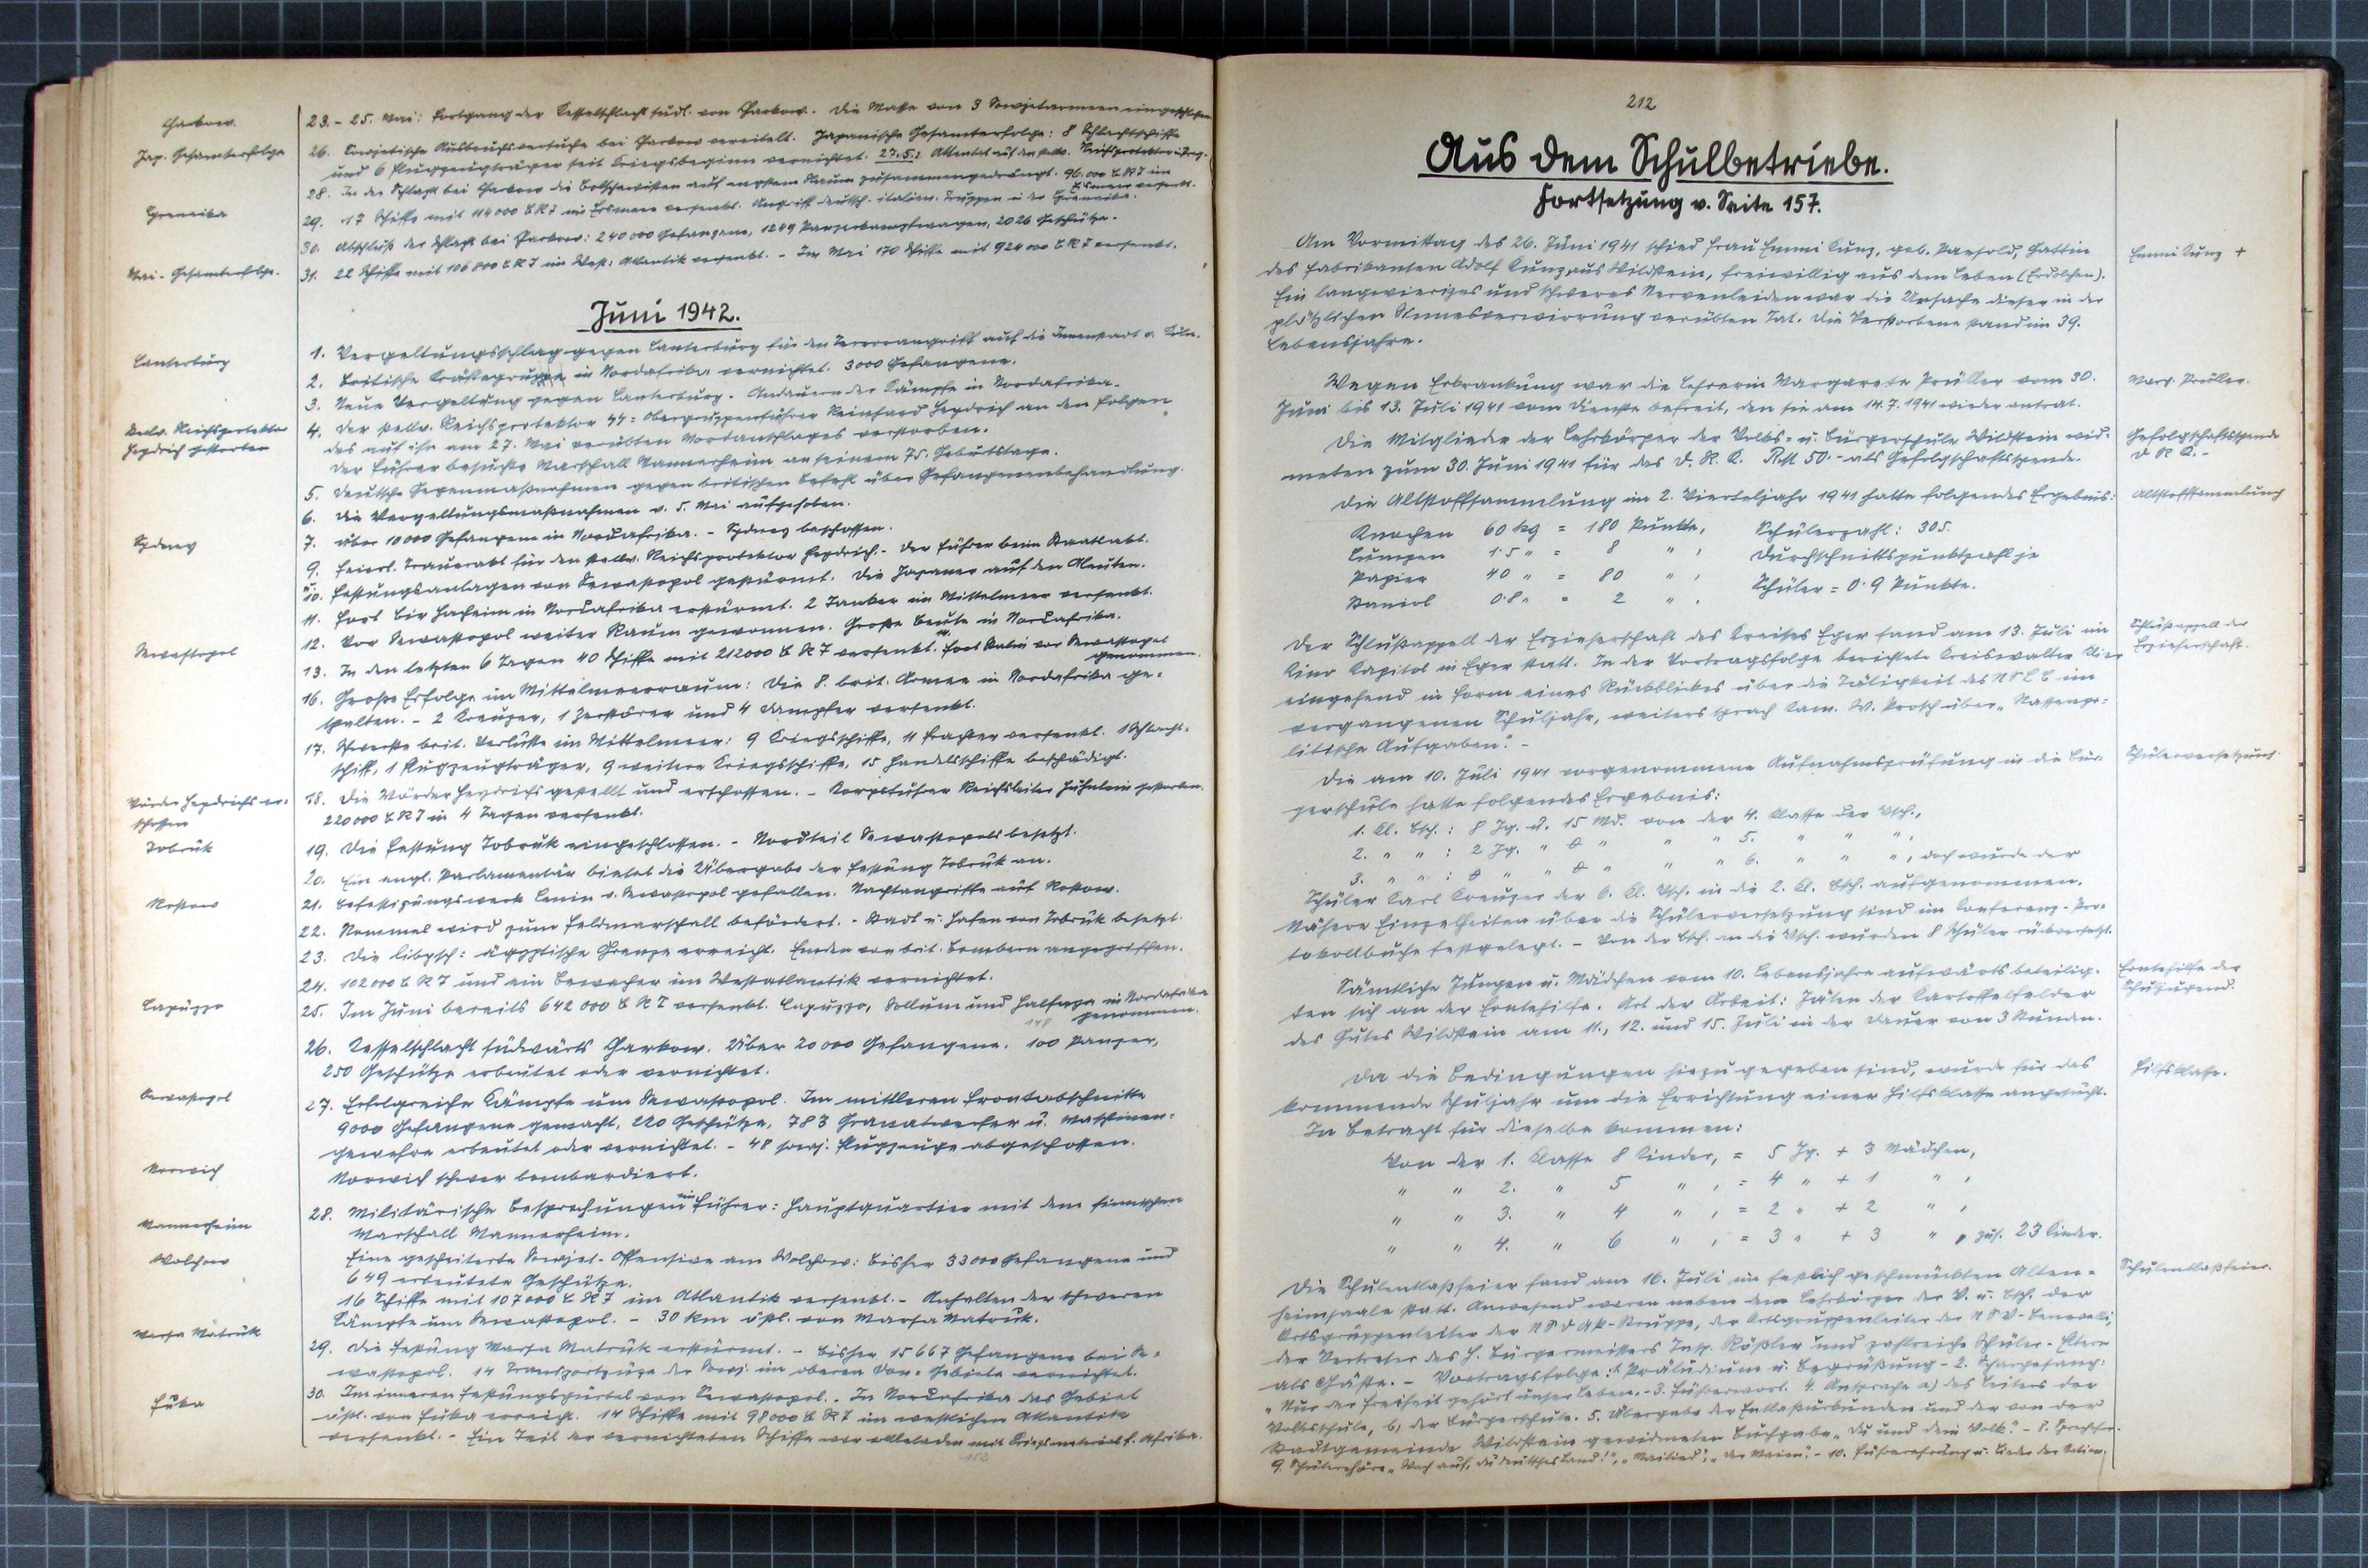 Charkow.
23.- 25. Mai: Fortgang der Kesselschlacht südl. von Charkow. Die Masse von 3 Sowjetarmeen eingeschlossen.
Jap. Gesamterfolge
26. Sowjetische Ausbruchsversuche bei Charkow vereitelt. Japanische Gesamterfolge: 8 Schlachtschiffe
und 6 Flugzeugträger seit Kriegsbeginn vernichtet. 27.5.: Attentat auf den stellv. Reichsprotektor
28. In der Schlacht bei Charkow die Bolschewisten auf engstem Raum zusammengedrängt. 96.000 BRT im
Eismeer versenkt.
Cyrenaika
29. 17 Schiffe mit 114000 BRT im Eismeer versenkt. Angriff deutsch-italien. Truppen in der Cyrenaika.
30. Abschluß der Schlacht bei Charkow: 240000 Gefangene, 1249 Panzerkampfwagen, 2026 Geschütze.
Mai-Gesamterfolge.
31. 22 Schiffe mit 106800 BRT im West-Atlantik versenkt. - Im Mai 170 Schiffe mit 924000 BRT versenkt.
Juni 1942.
Canterbury
1. Vergeltungsschlag gegen Canterbury für den Terrorangriff auf die Innenstadt v. Köln.
2. Britische Kräftegruppe in Nordafrika vernichtet. 3000 Gefangene.
3. Neue Vergeltung gegen Canterbury. Andauern der Kämpfe in Nordafrika.
Stellv. Reichsprotektor
Heydrich gestorben
4. Der stellv. Reichsprotektor SS-Obergruppenführer Reinhard Heydrich an den Folgen
des auf ihn am 27. Mai verübten Mordanschlages verstorben.
Der Führer besuchte Marschall Mannerheim an seinem 75. Geburtstage.
5. Deutsche Gegenmaßnahmen gegen britischen Befehl über Gefangenenbehandlung.
6. Die Vergeltungsmaßnahmen v. 5. Mai aufgehoben.
Sydney
7. Über 10000 Gefangene in Nordafrika. - Sydney beschossen.
9. Feierl. Trauerakt für den stellv. Reichsprotektor Heydrich. - Der Führer beim Staatsakt.
u. 10. Festungsanlagen von Sewastopol gestürmt. Die Japaner auf den Aleuten.
11. Fort Bir Hacheim in Nordafrika erstürmt. 2 Tanker im Mittelmeer versenkt.
12. Vor Sewastopol weiter Raum gewonnen. Große Beute in Nordafrika.
Sewastopol
13. In den letzten 6 Tagen 40 Schiffe mit 212000 BRT versenkt. Fort Stalin vor Sewastopol
genommen.
16. Große Erfolge im Mittelmeerraum: Die 8. brit. Armee in Nordafrika ge-
spalten. - 2 Kreuzer, 1 Zerstörer und 4 Dampfer versenkt.
17. Schwerste brit. Verluste im Mittelmeer: 9 Kriegsschiffe, 11 Frachter versenkt. 1 Schlacht-
schiff, 1 Flugzeugträger, 9 weitere Kriegsschiffe, 15 Handelsschiffe beschädigt.
Mörder Heydrichs er-
schossen
18. Die Mörder Heydrichs gestellt und erschossen. - Korpsführer Reichsleiter Hühnlein gestorben.
220000 BRT in 4 Tagen versenkt.
Tobruk
19. Die Festung Tobruk eingeschlossen. - Nordteil Sewastopols besetzt.
20. Ein engl. Parlamentär bietet die Übergabe der Festung Tobruk an.
Rostow
21. Befestigungswerk Lenin v. Sewastopol gefallen. Nachtangriffe auf Rostow.
22. Rommel wird zum Feldmarschall befördert. - Stadt u. Hafen von Tobruk besetzt.
23. Die libysch-ägyptische Grenze erreicht. Emden von brit. Bombern angegriffen.
24. 102000 BRT und ein Bewacher im Westatlantik vernichtet.
Capuzzo
25. Im Juni bereits 642000 BRT versenkt. Capuzzo, Sollum und Halfaya in Nordafrika
genommen.
26. Kesselschlacht südwärts Charkow. Über 20000 Gefangene. 100 Panzer,
250 Geschütze erbeutet oder vernichtet.
Sewastopol
27. Erfolgreiche Kämpfe um Sewastopol. Im mittleren Frontabschnitte
9000 Gefangene gemacht, 220 Geschütze, 783 Granatwerfer u. Maschinen-
gewehre erbeutet oder vernichtet. - 48 sowj. Flugzeuge abgeschossen.
Norwich
Norwich schwer bombardiert.
28. Militärische Besprechungen im Führer-Hauptquartier mit dem finnischen
Mannerheim
Marschall Mannerheim.
Wolchow
Eine gescheiterte Sowjet-Offensive am Wolchow: Bisher 33000 Gefangene und
649 erbeutete Geschütze.
16 Schiffe mit 107000 BRT im Atlantik versenkt. - Anhalten der schweren
Kämpfe um Sewastopol. - 30 km östl. von Marsa Matruk.
Marsa Matruk
29. Die Festung Marsa Matruk erstürmt. - Bisher 15667 Gefangene bei Se-
wastopol. 14 Transportzüge der Sowj. im oberen Don-Gebiete vernichtet.
Fuka
30. Im inneren Festungsgürtel von Sewastopol. - In Nordafrika das Gebiet
östl. von Fuka erreicht. 14 Schiffe mit 98000 BRT im westlichen Atlantik
versenkt. - Ein Teil der vernichteten Schiffe war vollbeladen mit Kriegsmaterial f. Afrika.
212
Aus dem Schulbetriebe.
Fortsetzung v. Seite 157.
Am Vormittag des 26. Juni 1941 schied Frau Emmi Kunz, geb. Panhold, Gattin
Emmi Kunz +
des Fabrikanten Adolf Kunz aus Wildstein, freiwillig aus dem Leben (Erdolchen).
Ein langwieriges und schweres Nervenleiden war die Ursache dieser in der
plötzlichen Sinnesverwirrung verübten Tat. Die Verstorbene stand im 39.
Lebensjahre.
Wegen Erkrankung war die Lehrerin Margarete Prüller vom 30.
Marg. Prüller.
Juni bis 13. Juli 1941 vom Dienste befreit, den sie am 14.7.1941 wieder antrat.
Die Mitglieder der Lehrkörper der Volks- u. Bürgerschule Wildstein wid-
Gefolgschaftsspende
D R K.-
meten zum 30. Juni 1941 für das D. R. K. RM 50.- als Gefolgschaftsspende.
Die Altstoffsammlung im 2. Vierteljahr 1941 hatte folgendes Ergebnis:
Altstoffsammlung
Knochen 60 kg = 180 Punkte, Schülerzahl: 305.
Lumpen 1·5 " = 8 " , Durchschnittspunktzahl je
Papier 40 " = 80 " , Schüler = 0·9 Punkte.
Staniol 0·8 " = 2 " .
Der Schlußappell der Erzieherschaft des Kreises Eger fand am 13. Juli im
Schlußappell der
Erzieherschaft.
Kino Kapitol in Eger statt. In der Vortragsfolge berichtete Kreiswalter
eingehend in Form eines Rückblickes über die Tätigkeit des NSLB im
vergangenen Schuljahr, weiters sprach Kam. W. Prosch über „Rassenpo-
litische Aufgaben". -
Die am 10. Juli 1941 vorgenommene Aufnahmsprüfung in die Bür-
Schülerversetzung.
gerschule hatte folgendes Ergebnis:
1. Kl. Bsch.: 8 Jg. u. 15 Md. von der 4. Klasse der Vsch.,
2. " " : 2 Jg. " 0 " " " 5. " " ",
3. " " : 0 " " 0 " " " 6. " " ", doch wurde der
Schüler Karl Kreuzer der 6. Kl. Vsch. in die 2. Kl. Bsch. aufgenommen.
Nähere Einzelheiten über die Schülerversetzung sind im Konferenz-Pro-
tokollbuche festgelegt. - Von der Bsch. an die Vsch. wurden 8 Schüler rückversetzt.
Sämtliche Jungen u. Mädchen vom 10. Lebensjahre aufwärts beteilig-
Erntehilfe der
Schuljugend.
ten sich an der Erntehilfe. Art der Arbeit: Jäten der Kartoffelfelder
des Gutes Wildstein am 11., 12. und 15. Juli in der Dauer von 3 Stunden.
Da die Bedingungen hiezu gegeben sind, wurde für das
Hilfsklasse.
kommende Schuljahr um die Errichtung einer Hilfsklasse angesucht.
In Betracht für dieselbe kommen:
Von der 1. Klasse 8 Kinder, = 5 Jg. + 3 Mädchen,
" " 2. " 5 " , = 4 " + 1 " ,
" " 3. " 4 " , = 2 " + 2 " ,
" " 4. " 6 " , = 3 " + 3 " , zus. 23 Kinder.
Die Schulentlaßfeier fand am 16. Juli im festlich geschmückten Alten-
Schulentlaßfeier.
heimsaale statt. Anwesend waren neben dem Lehrkörper der V. u. Bsch. der
Ortsgruppenleiter der NSDAP-Kruppe, der Ortsgruppenleiter der NSV-
der Vertreter des H. Bürgermeisters Insp. Rößler und zahlreiche Schüler-Eltern
als Gäste. - Vortragsfolge: 1. Präludium u. Begrüßung - 2. Chorgesang:
„Nur der Freiheit gehört unser Leben. - 3. Führerwort. 4. Ansprache a) des Leiters der
Volksschule, b) der Bürgerschule. 5. Übergabe der Entlaßurkunden und der von der
Stadtgemeinde Wildstein gewidmeten Buchgabe „Du und dein Volk". - 8.
9. Schülerchöre „Wach auf, du deutsches Land!", „Mailied", - 10. Führerehrung u. Lieder der Nation.